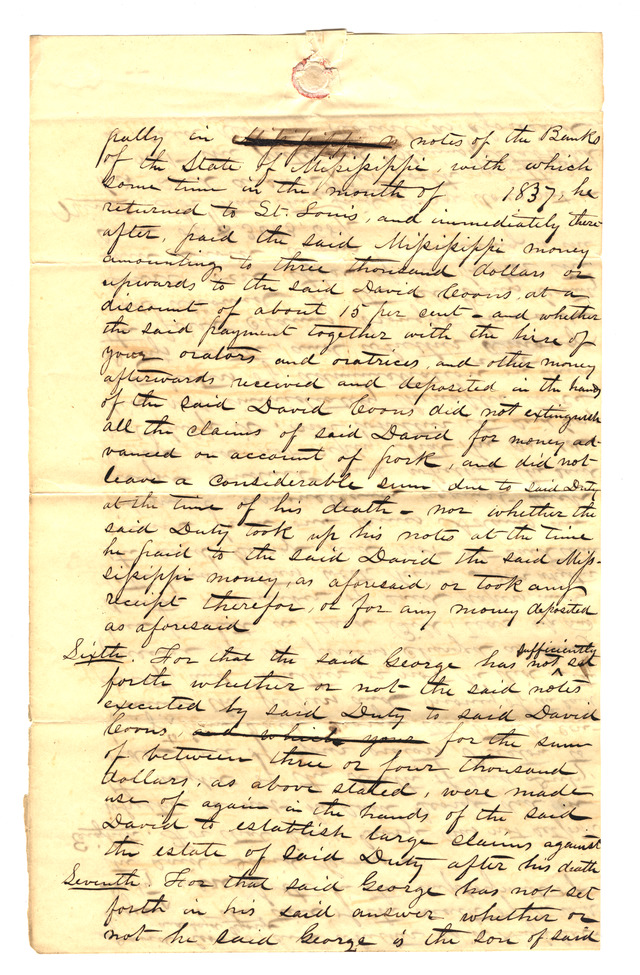 pally in Mississippi notes of the Banks
of the State of Missisippi, with which
some time in the month of 1837, he
returned to St. Louis, and immediately there
after, paid the said Missisippi money
amounting to three thousand dollars or
upwards to the said David Coons, at a
discount of about 15 per cent - and whether
the said payment together with the hire of
your orators and oratrices, and other money
afterwards received and deposited in the hands
of the said David Coons did not extinguish
all the claims of said David for money ad-
vanced on account of pork, and did not
leave a considerable sum due to said Duty
at the time of his death - nor whether the
said Duty took up his notes at the time
he paid to the said David the said Mis-
sisippi money, as aforesaid, or took any
receipt therefor, or for any money deposited
as aforesaid
Sixth. For that the said George has not sufficiently set
forth whether or not the said notes
executed by said Duty to said David
Coons, and which your for the sum
of between three or four thousand
dollars, as above stated, were made
use of again in the hands of the said
David to establish large claims against
the estate of said Duty after his death
Seventh. For that said George has not set
forth in his said answer whether or
not he said George is the son of said